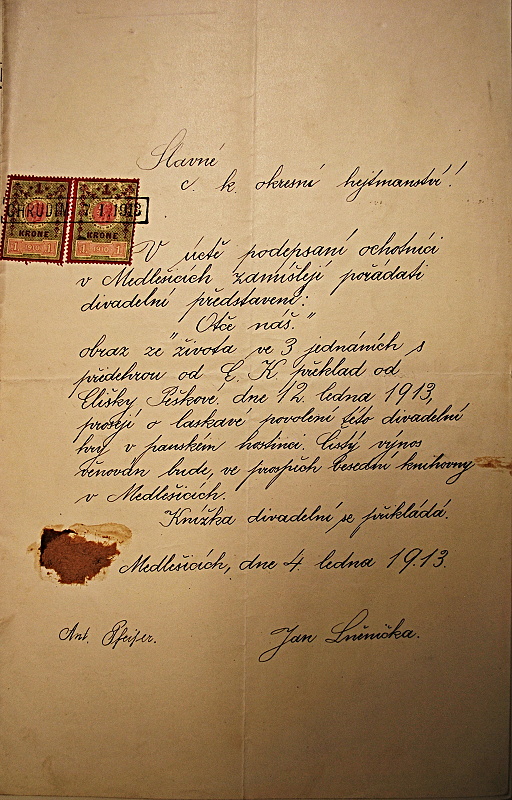 Slavné
c. k. okresní hejtmanství!
1 1
CHRUDIM 7 1 1913
KRONE KRONE
1 1910 1 1 1910 1
V úctě podepsaní ochotníci
v Medlešicích zamišlejí pořádati
divadelní představení:
„Otče náš."
obraz ze života ve 3 jednáních s
předehrou od E. K. překlad od
Elišky Peškové. dne 12. ledna 1913,
prosejí o laskavé povolení této divadelní
hry v panském hostinci. Čistý výnos
věnován bude, ve prospěch besední knihovny
v Medlešicích.
Knížka divadelní se přikládá.
Medlešicích, dne 4 ledna 1913.
Ant. Pfeifer.
Jan